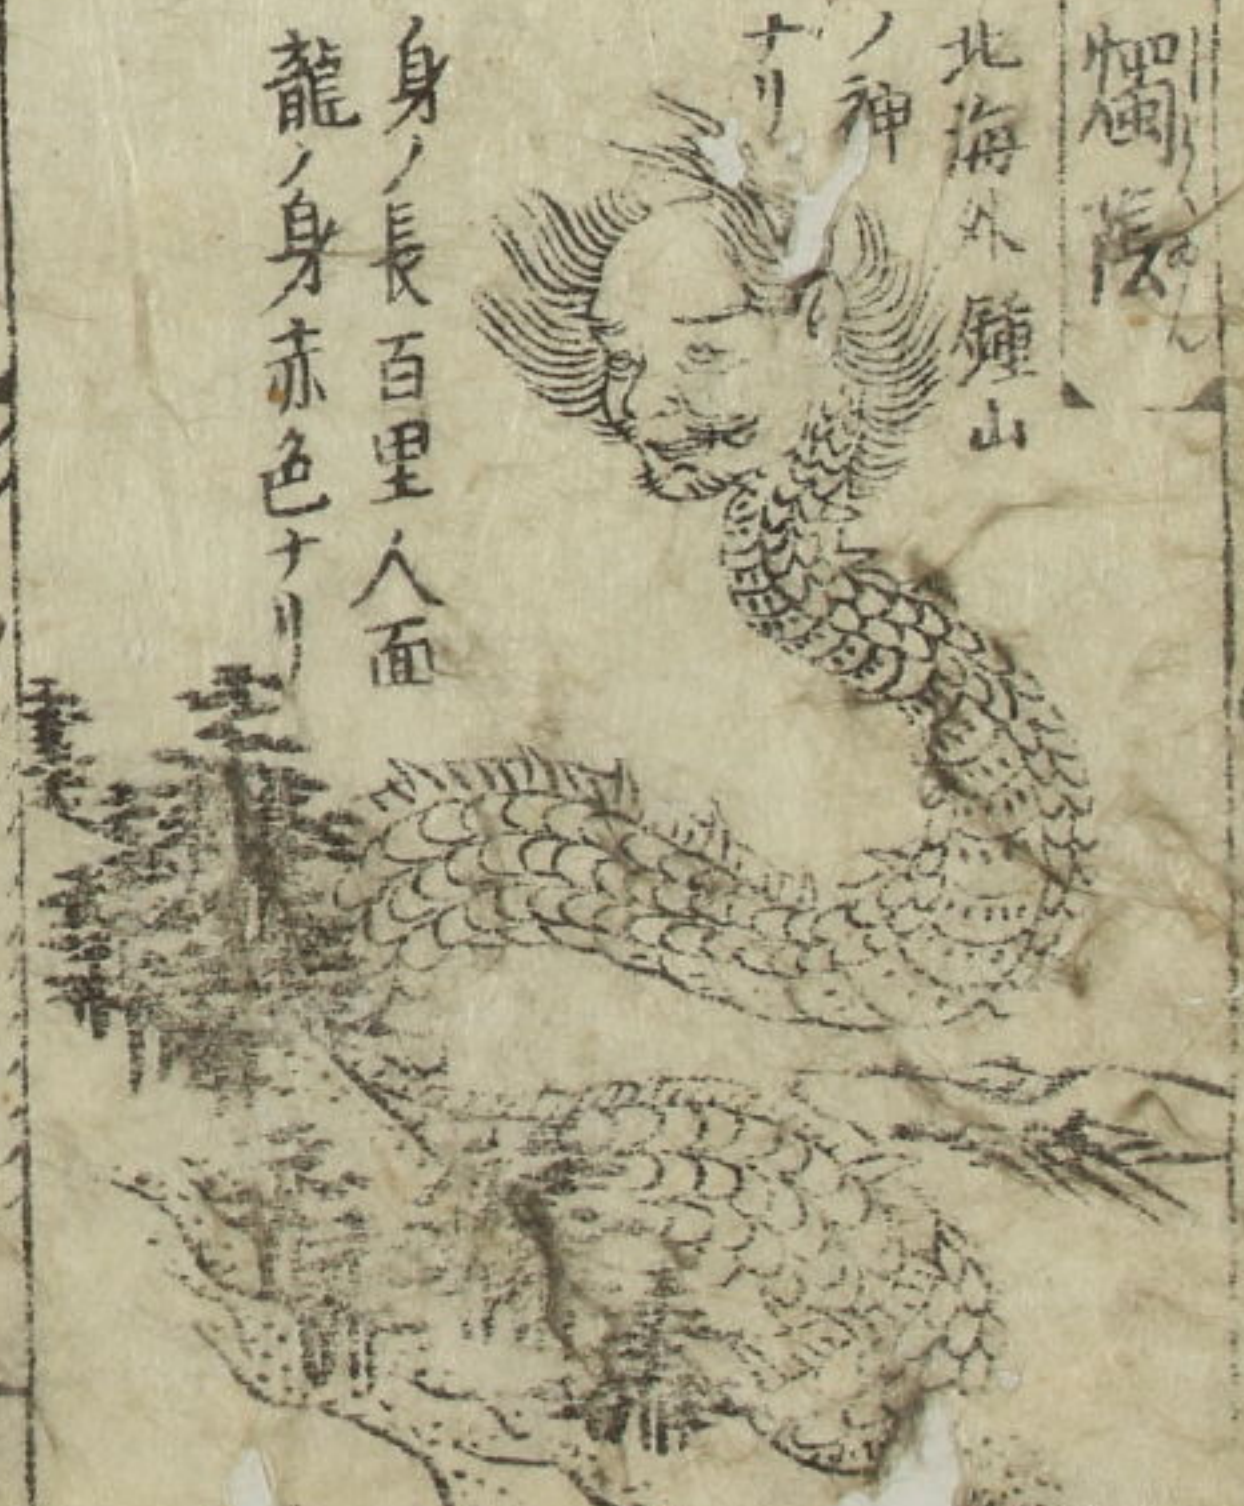 燭陰
しよくゐん
北海外鍾山
ノ神
ナリ
身ノ長百里人面
龍ノ身赤色ナリ